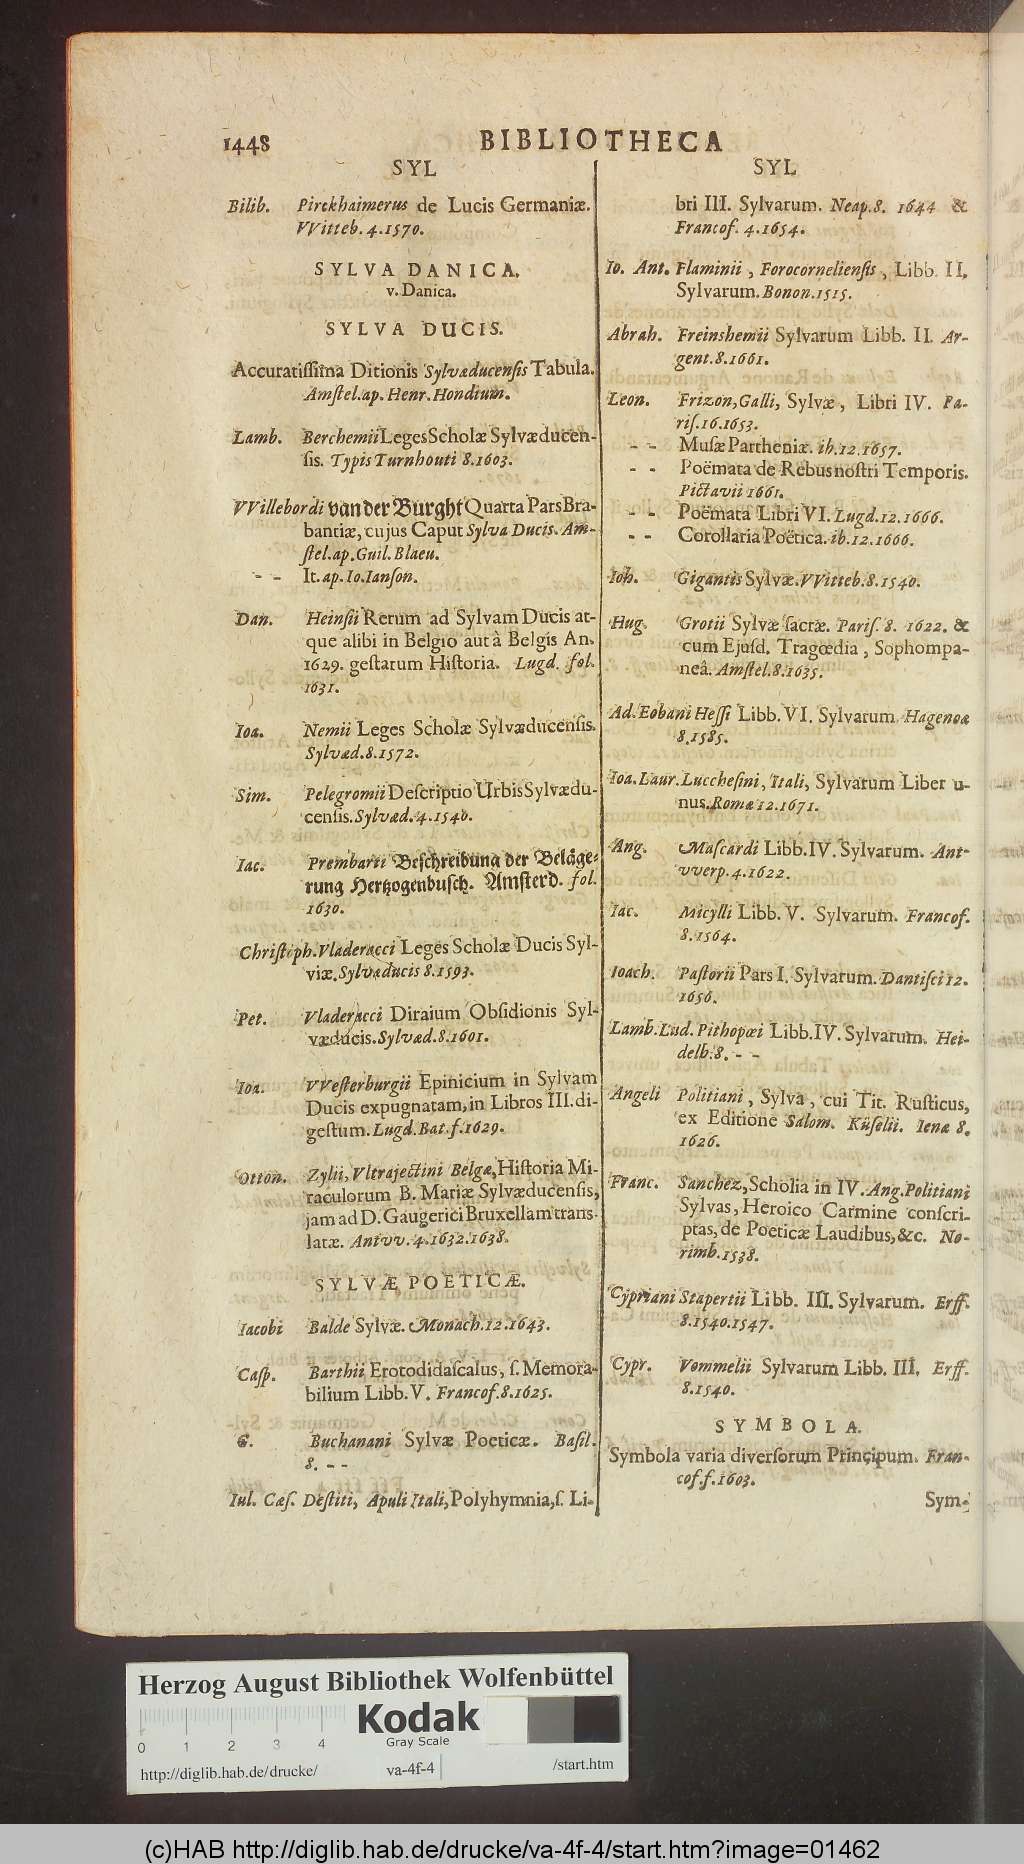 1448
BIBLIOTHECA
SYL
Bilib. Pirckhaimerus de Lucis Germaniæ.
VVitteb. 4. 1570.
SYLVA DANICA.
v. Danica.
SYLVA DUCIS.
Accuratissima Ditionis Sylvæducensis Tabula.
Amstel. ap. Henr. Hondium.
Lamb. Berchemii Leges Scholæ Sylvæducen-
sis. Typis Turnhouti 8. 1603.
VVillebordi van der Burght Quarta Pars Bra-
bantiæ, cujus Caput Sylva Ducis. Am-
stel. ap. Guil. Blaeu.
- - It. ap. Io. Ianson.
Dan. Heinsii Rerum ad Sylvam Ducis at-
que alibi in Belgio aut à Belgis An.
1629. gestarum Historia. Lugd. fol.
1631.
Ioa. Nemii Leges Scholæ Sylvæducensis.
Sylvæd. 8. 1572.
Sim. Pelegromii Descriptio Urbis Sylvædu-
censis. Sylvæd. 4. 1540.
Iac. Prembarti Beschreibung der Beläge-
rung Hertzogenbusch. Amsterd. fol.
1630.
Christoph. Vladeracci Leges Scholæ Ducis Syl-
viæ. Sylvaducis 8. 1593.
Pet. Vladeracci Diraium Obsidionis Syl-
væducis. Sylvæd. 8. 1601.
Ioa. VVesterburgii Epinicium in Sylvam
Ducis expugnatam, in Libros III. di-
gestum. Lugd. Bat. f. 1629.
Otton. Zylii, Vltrajectini Belgæ, Historia Mi-
raculorum B. Mariæ Sylvæducensis,
jam ad D. Gaugerici Bruxellam trans-
latæ. Antvv. 4. 1632. 1638.
SYLVÆ POETICÆ.
Iacobi Balde Sylvæ. Monach. 12. 1643.
Casp. Barthii Erotodidascalus, s. Memora-
bilium Libb. V. Francof. 8. 1625.
G. Buchanani Sylvæ Poeticæ. Basil.
8. - -
Iul. Cæs. Destiti, Apuli Itali, Polyhymnia, s. Li-
SYL
bri III. Sylvarum. Neap. 8. 1644 &
Francof. 4. 1654.
Io. Ant. Flaminii, Forocorneliensis, Libb. II.
Sylvarum. Bonon. 1515.
Abrah. Freinshemii Sylvarum Libb. II. Ar-
gent. 8. 1661.
Leon. Frizon, Galli, Sylvæ, Libri IV. Pa-
ris. 16. 1653.
- - Musæ Partheniæ. ib. 12. 1657.
- - Poëmata de Rebus nostri Temporis.
Pictavii 1661.
- - Poëmata Libri VI. Lugd. 12. 1666.
- - Corollaria Poëtica. ib. 12. 1666.
Ioh. Gigantis Sylvæ. VVitteb. 8. 1540.
Hug. Grotii Sylvæ sacræ. Paris. 8. 1622. &
cum Ejusd. Tragœdia, Sophompa-
neâ. Amstel. 8. 1635.
Ad. Eobani Hessi Libb. VI. Sylvarum. Hagenoæ
8. 1585.
Ioa. Laur. Lucchesini, Itali, Sylvarum Liber u-
nus. Romæ 12. 1671.
Ang. Mascardi Libb. IV. Sylvarum. Ant-
vverp. 4. 1622.
Iac. Micylli Libb. V. Sylvarum. Francof.
8. 1564.
Ioach. Pastorii Pars I. Sylvarum. Dantisci 12.
1656.
Lamb. Lud. Pithopœi Libb. IV. Sylvarum. Hei-
delb. 8. - -
Angeli Politiani, Sylva, cui Tit. Rusticus,
ex Editione Salom. Küselii. Ienæ 8.
1626.
Franc. Sanchez, Scholia in IV. Ang. Politiani
Sylvas, Heroico Carmine conscri-
ptas, de Poeticæ Laudibus, &c. No-
rimb. 1538.
Cypriani Stapertii Libb. III. Sylvarum. Erff.
8. 1540. 1547.
Cypr. Vommelii Sylvarum Libb. III. Erff.
8. 1540.
SYMBOLA.
Symbola varia diversorum Principum. Fran-
cof. f. 1603.
Sym-
Herzog August Bibliothek Wolfenbüttel
Kodak
Gray Scale
0 1 2 3 4
http://diglib.hab.de/drucke/ va-4f-4 /start.htm
(c)HAB http://diglib.hab.de/drucke/va-4f-4/start.htm?image=01462